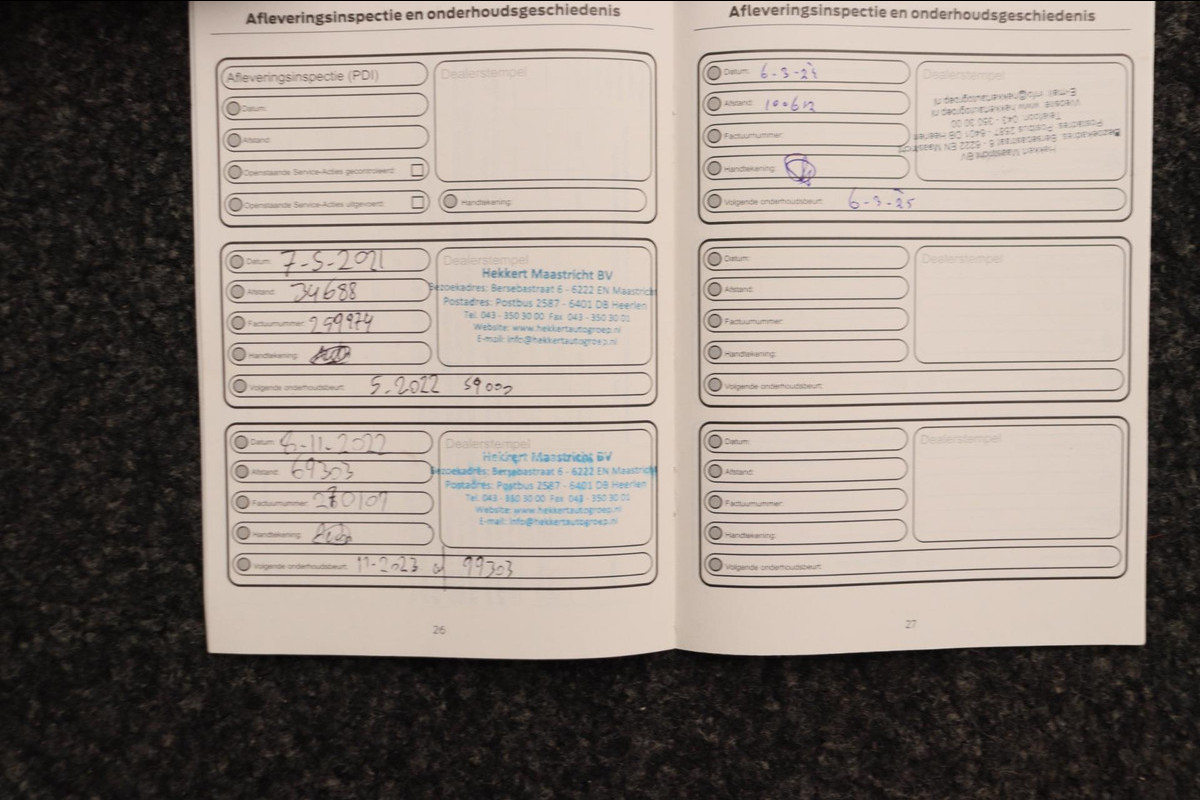 Afleveringsinspectie en onderhoudsgeschiedenis
Afleveringsinspectie (PDI)
Dealerstempel
Datum:
Afstand:
Openstaande Service-Acties gecontroleerd:
Openstaande Service-Acties uitgevoerd:
Handtekening:
Datum: 7-5-2021
Afstand: 34688
Factuurnummer: 259974
Handtekening:
Dealerstempel
Hekkert Maastricht BV
Bezoekadres: Bersebastraat 6 - 6222 EN Maastricht
Postadres: Postbus 2587 - 6401 DB Heerlen
Tel. 043 - 350 30 00 Fax 043 - 350 30 01
Website: www.hekkertautogroep.nl
E-mail: info@hekkertautogroep.nl
Volgende onderhoudsbeurt: 5-2022 59000
Datum: 8-11-2022
Afstand: 69303
Factuurnummer: 270107
Handtekening:
Dealerstempel
Hekkert Maastricht BV
Bezoekadres: Bersebastraat 6 - 6222 EN Maastricht
Postadres: Postbus 2587 - 6401 DB Heerlen
Tel. 043 - 350 30 00 Fax 043 - 350 30 01
Website: www.hekkertautogroep.nl
E-mail: info@hekkertautogroep.nl
Volgende onderhoudsbeurt: 11-2023 of 99303
26
Afleveringsinspectie en onderhoudsgeschiedenis
Datum: 6-3-24
Afstand: 100612
Factuurnummer:
Handtekening:
Dealerstempel
Hekkert Maastricht BV
Bezoekadres: Bersebastraat 6 - 6222 EN Maastricht
Postadres: Postbus 2587 - 6401 DB Heerlen
Telefoon: 043 - 350 30 00
Website: www.hekkertautogroep.nl
E-mail: info@hekkertautogroep.nl
Volgende onderhoudsbeurt: 6-3-25
Datum:
Afstand:
Factuurnummer:
Handtekening:
Dealerstempel
Volgende onderhoudsbeurt:
Datum:
Afstand:
Factuurnummer:
Handtekening:
Dealerstempel
Volgende onderhoudsbeurt:
27